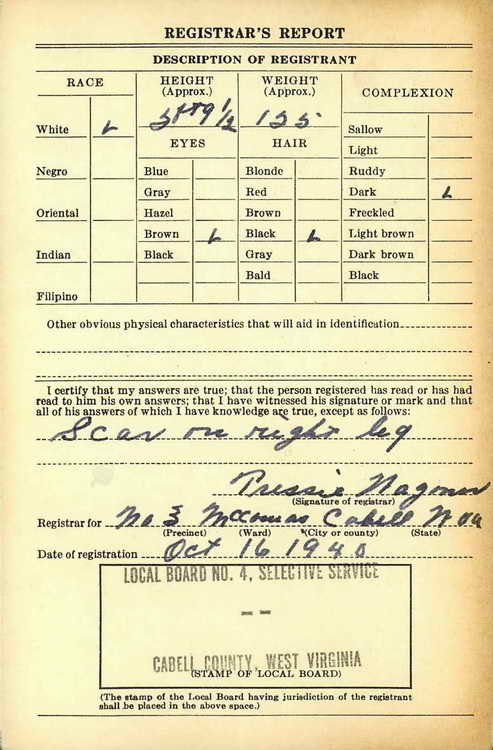 REGISTRAR'S REPORT
DESCRIPTION OF REGISTRANT
RACE
HEIGHT
(Approx.)
WEIGHT
(Approx.)
COMPLEXION
White
125
Sallow
EYES
HAIR
Light
Negro
Blue
Blonde
Ruddy
Gray
Red
Dark
Oriental
Hazel
Brown
Freckled
Brown
Black
Light brown
Indian
Black
Gray
Dark brown
Bald
Black
Filipino
Other obvious physical characteristics that will aid in identification
I certify that my answers are true; that the person registered has read or has had
read to him his own answers; that I have witnessed his signature or mark and that
all of his answers of which I have knowledge are true, except as follows:
Scar on right leg
Pressie Wagoner
(Signature of registrar)
Registrar for No 3 McComas Cabell W Va
(Precinct) (Ward) (City or county) (State)
Date of registration Oct 16 1940
LOCAL BOARD NO. 4, SELECTIVE SERVICE
CABELL COUNTY, WEST VIRGINIA
(STAMP OF LOCAL BOARD)
(The stamp of the Local Board having jurisdiction of the registrant
shall be placed in the above space.)